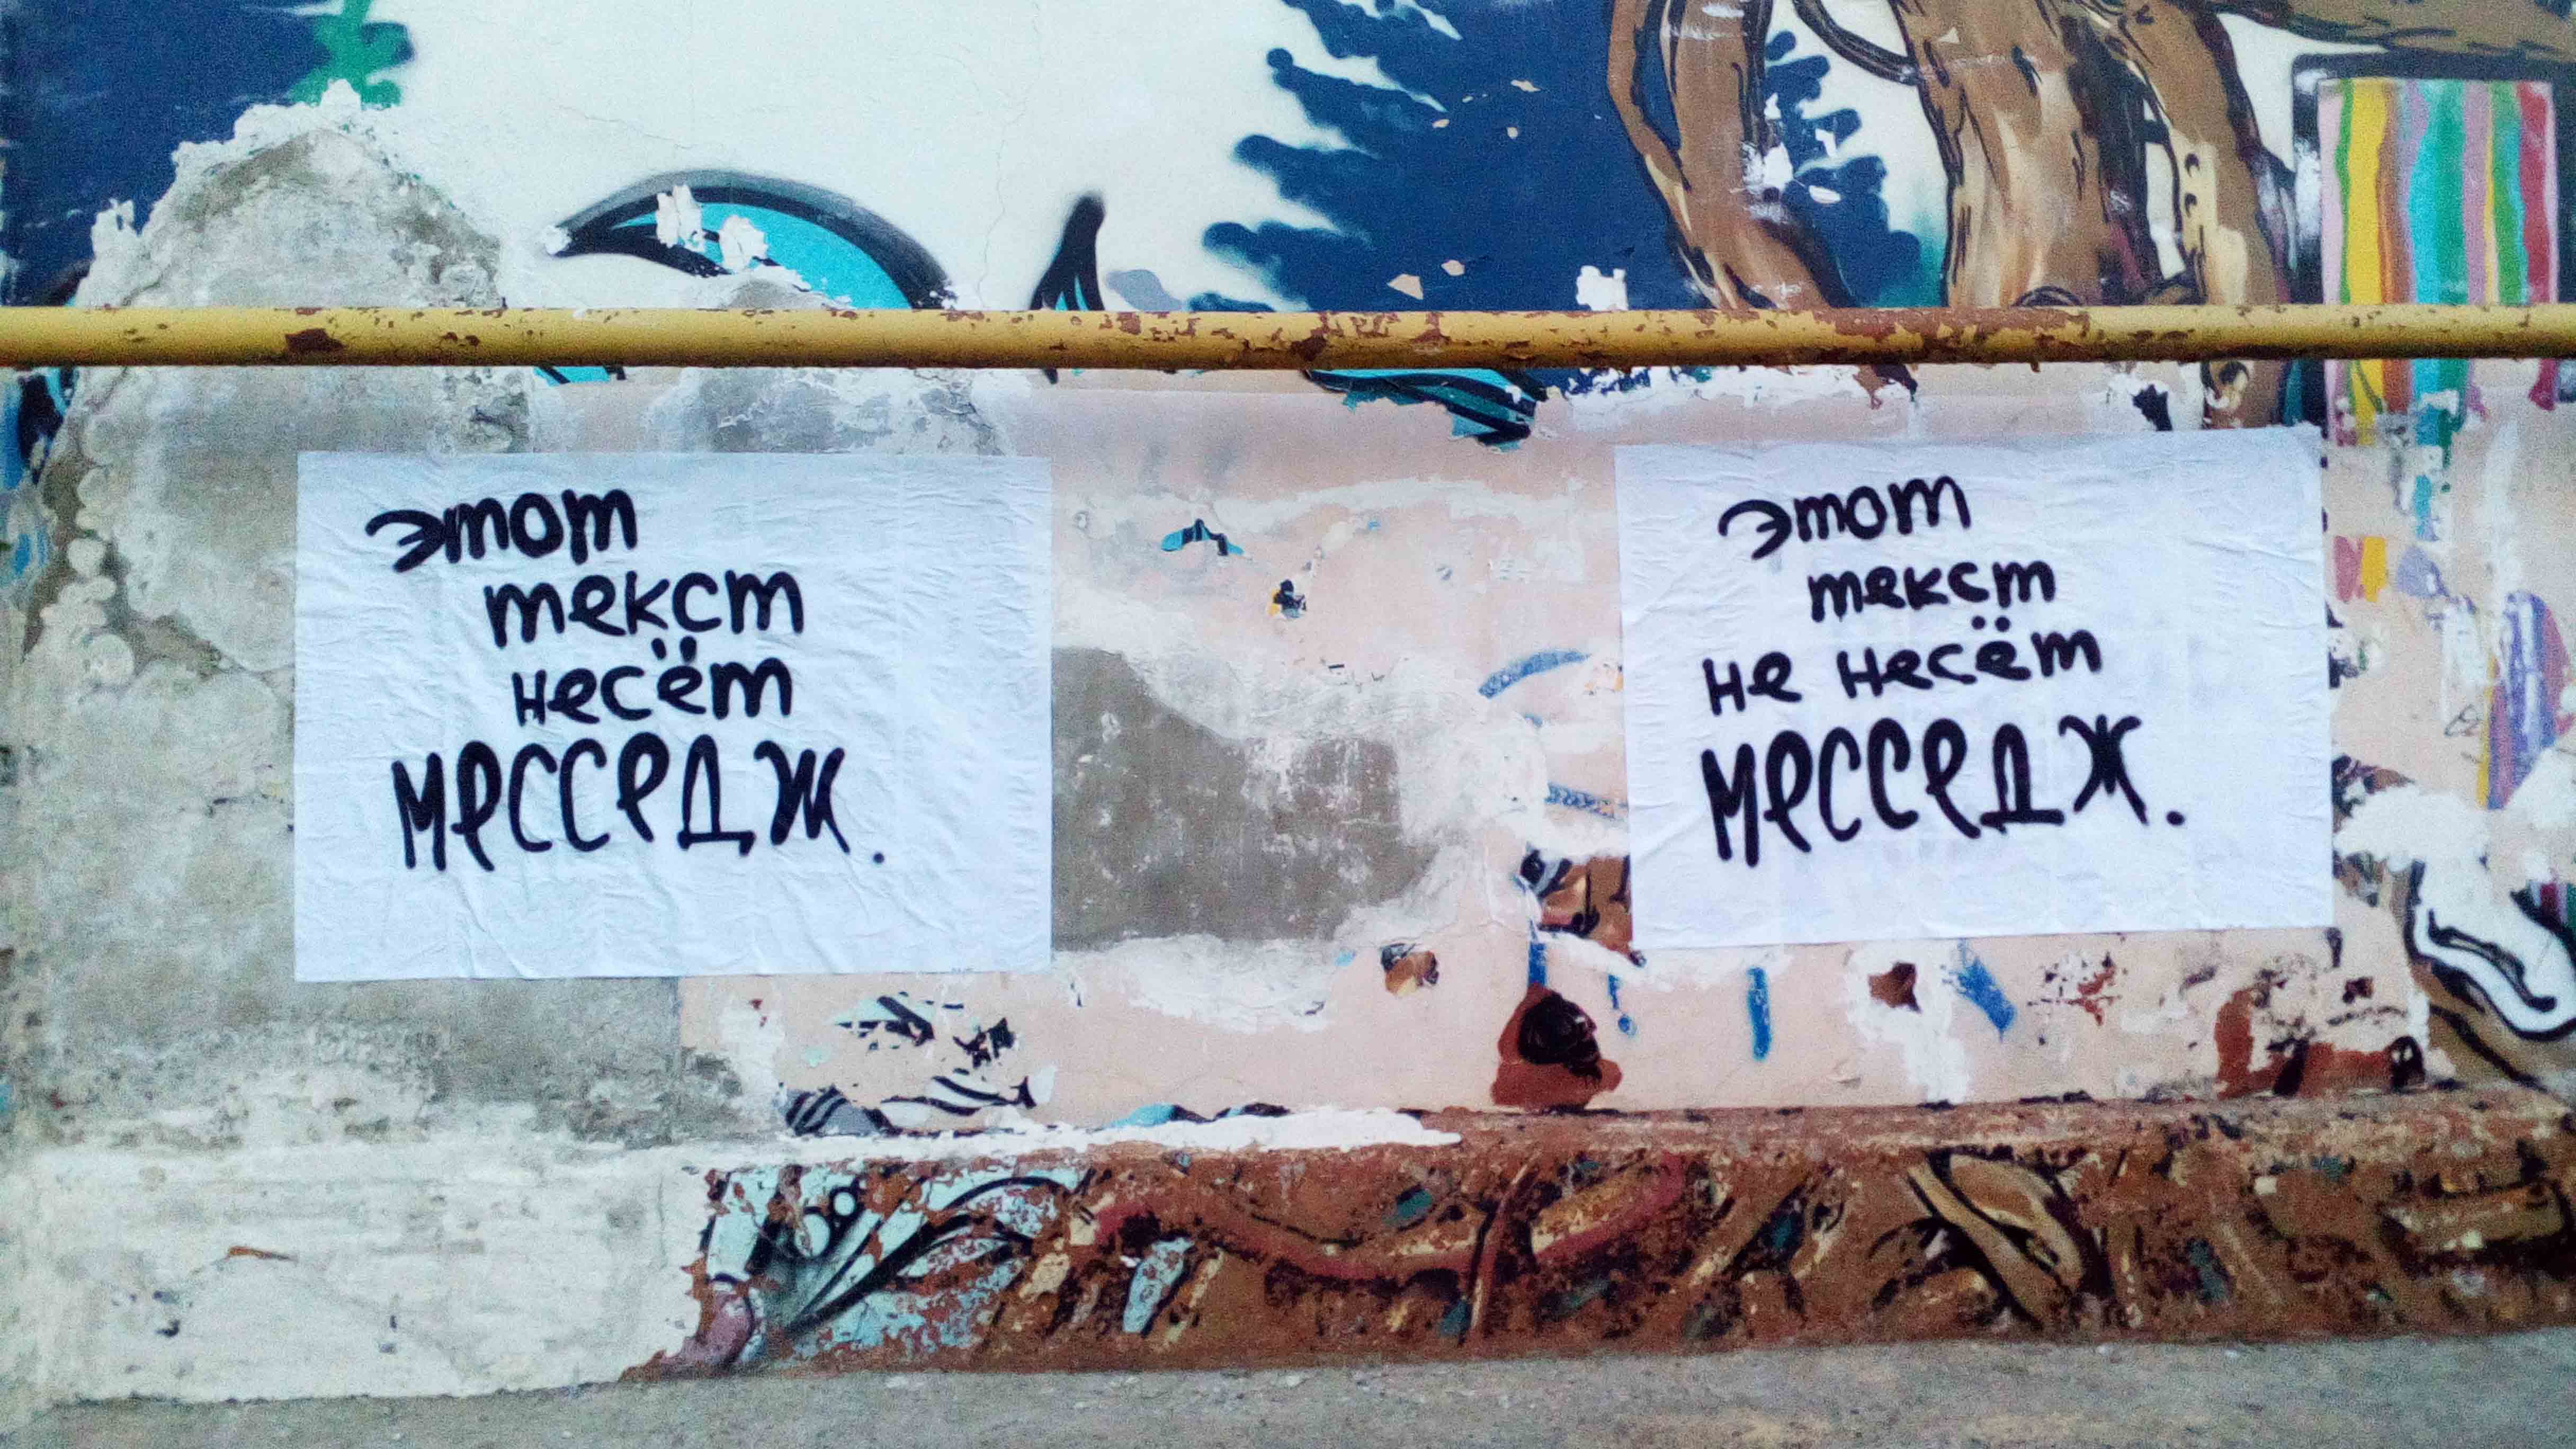 Этот
текст
несёт
месседж.
Этот
текст
не несёт
месседж.